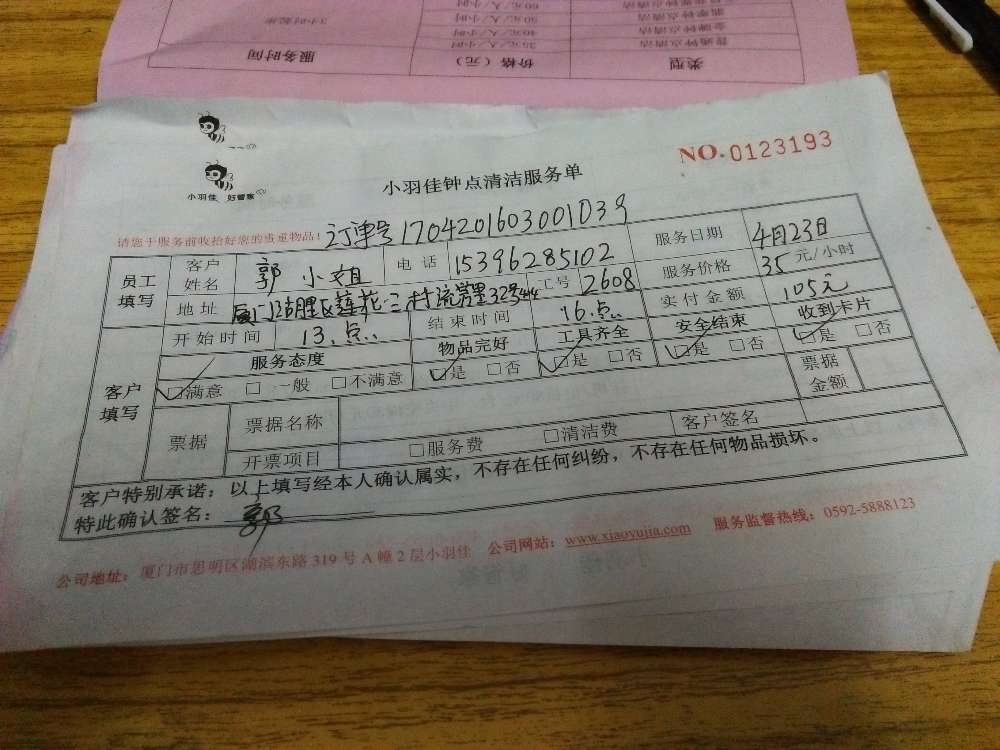 类型 价格（元） 服务时间
普通钟点清洁 35元/人/小时
金牌钟点清洁 40元/人/小时 3小时起步
50元/人/小时
60元/人/小时
小羽佳 好管家
小羽佳钟点清洁服务单
NO.0123193
请您于服务前收拾好您的贵重物品！ 订单号 1704201603001039
员工填写 客户姓名 郭小姐 电话 15396285102 服务日期 4月23日
地址 厦门湖里区莲花三村流芳里32号 工号 2608 服务价格 35 元/小时
开始时间 13.点 结束时间 16.点 实付金额 105元
客户填写 服务态度 物品完好 工具齐全 安全结束 收到卡片
☑满意 □一般 □不满意 ☑是 □否 ☑是 □否 ☑是 □否 ☑是 □否
票据 票据名称 票据金额
开票项目 □服务费 □清洁费 客户签名
客户特别承诺：以上填写经本人确认属实，不存在任何纠纷，不存在任何物品损坏。
特此确认签名：郭
公司地址：厦门市思明区湖滨东路 319 号 A 幢 2 层小羽佳 公司网站：www.xiaoyujia.com 服务监督热线：0592-5888123